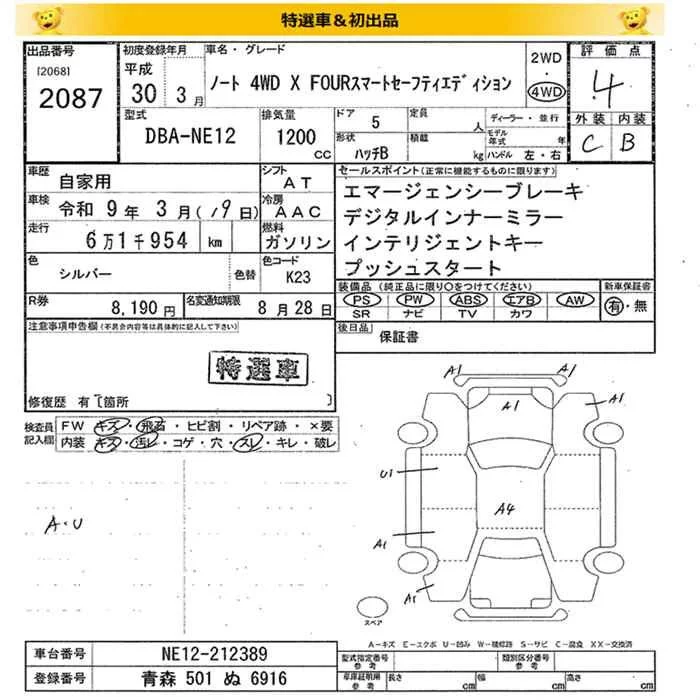 特選車＆初出品
出品番号 初度登録年月 車名・グレード 2WD 評価点
[2068] 平成 ・
2087 30 3月 ノート 4WD X FOURスマートセーフティエディション 4WD 4
型式 排気量 ドア 5 定員 人 ディーラー・並行 外装 内装
DBA-NE12 1200cc 形状 ハッチB 積載 kg モデル年式 年 ハンドル 左・右 C B
車歴 自家用 シフト AT セールスポイント(正常に機能するものに限ります)
車検 令和 9年 3月(19日) 冷房 AAC エマージェンシーブレーキ
走行 6万1千954 km 燃料 ガソリン デジタルインナーミラー
色 シルバー 色替 色コード K23 インテリジェントキー
プッシュスタート
R券 8,190円 名変通知期限 8月28日 装備品(純正品に限り○をつけてください) 新車保証書
PS PW ABS エアB AW 有・無
SR ナビ TV カワ
注意事項申告欄(不具合内容等は具体的に記入して下さい) 後日品 保証書
特選車
修復歴 有〔箇所 〕
検査員記入欄 FW キズ・飛石・ヒビ割・リペア跡・×要
内装 キズ・汚レ・コゲ・穴・スレ・キレ・破レ
A1 A1
A1 A1
U1
A4
A・U
A1
A1
スペア
A－キズ E－エクボ U－凹み W－補修跡 S－サビ C－腐食 XX－交換済
車台番号 NE12-212389 型式指定番号参考 類別区分番号参考
登録番号 青森 501 ぬ 6916 車庫証明用参考 長さ cm 幅 cm 高さ cm